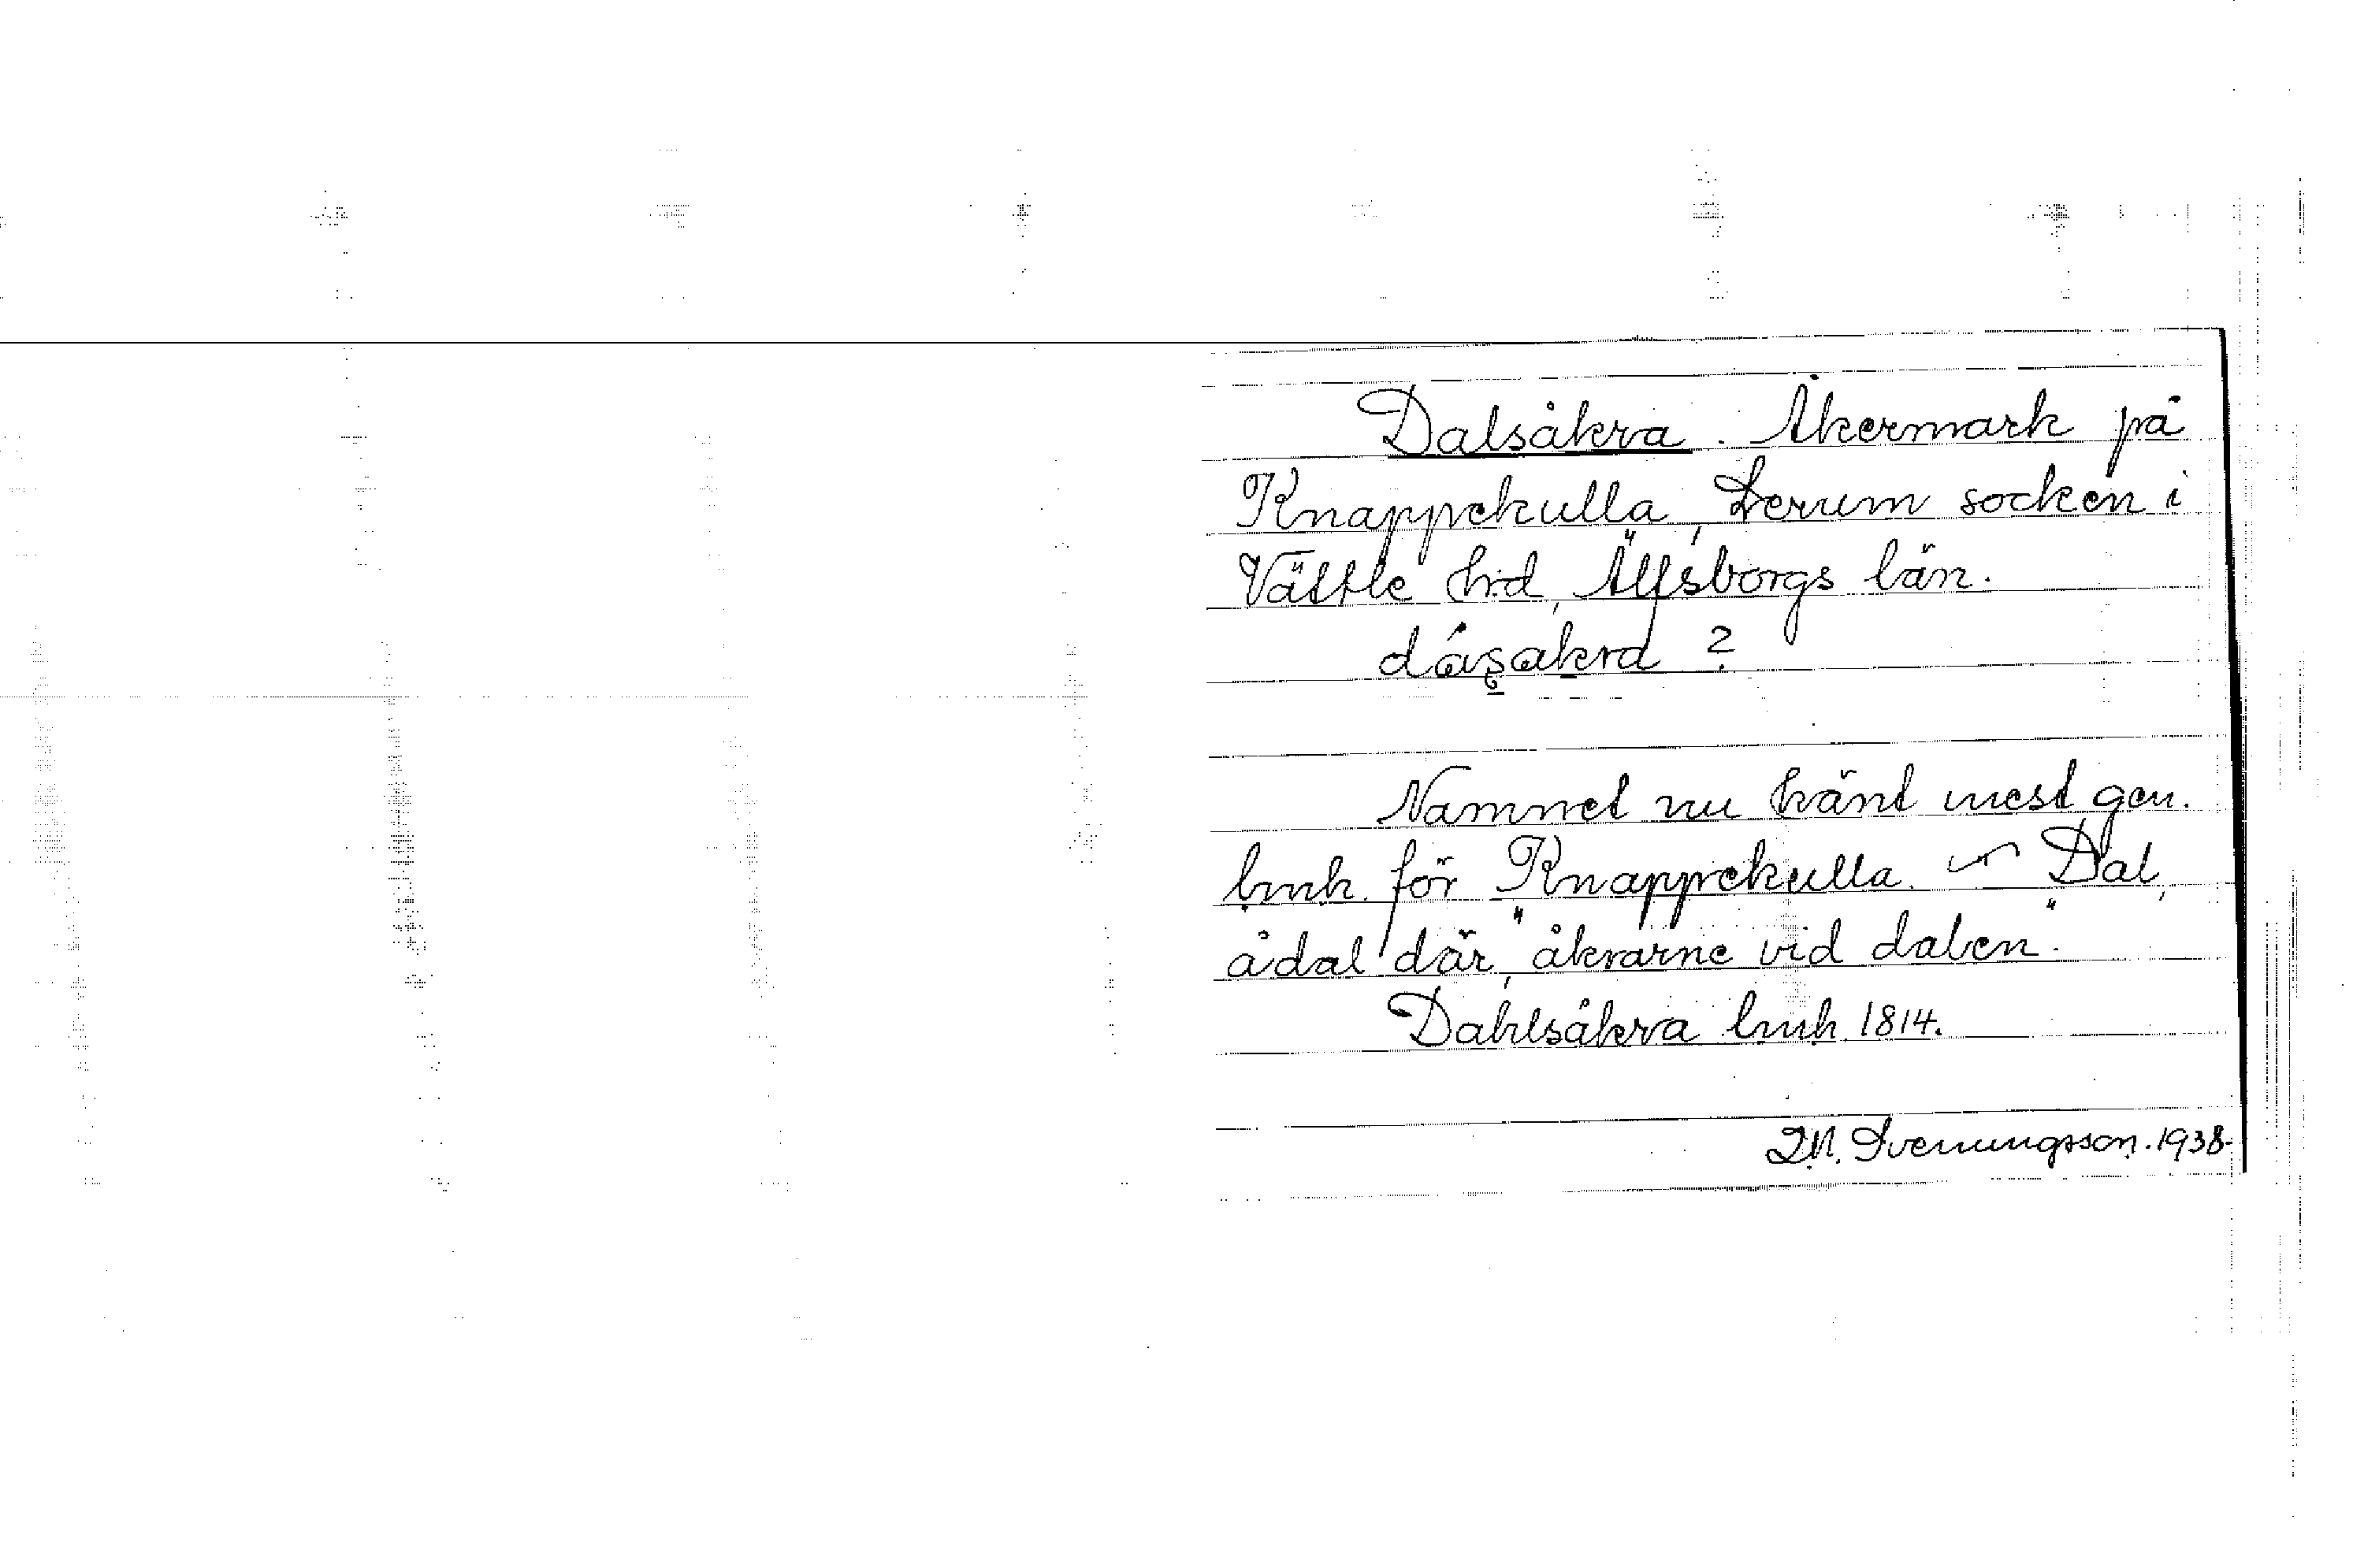 Dalsåkra. Åkermark på
Knappekulla, Lerum socken i
Vättle hd, Älfsborgs län.
dásakra ?
Namnet nu känt mest gen.
lmh. för Knappekulla. ~ Dal,
ådal där, åkrarne vid dalen.
Dahlsåkra lmh. 1814.
Svenungsson. 1938.